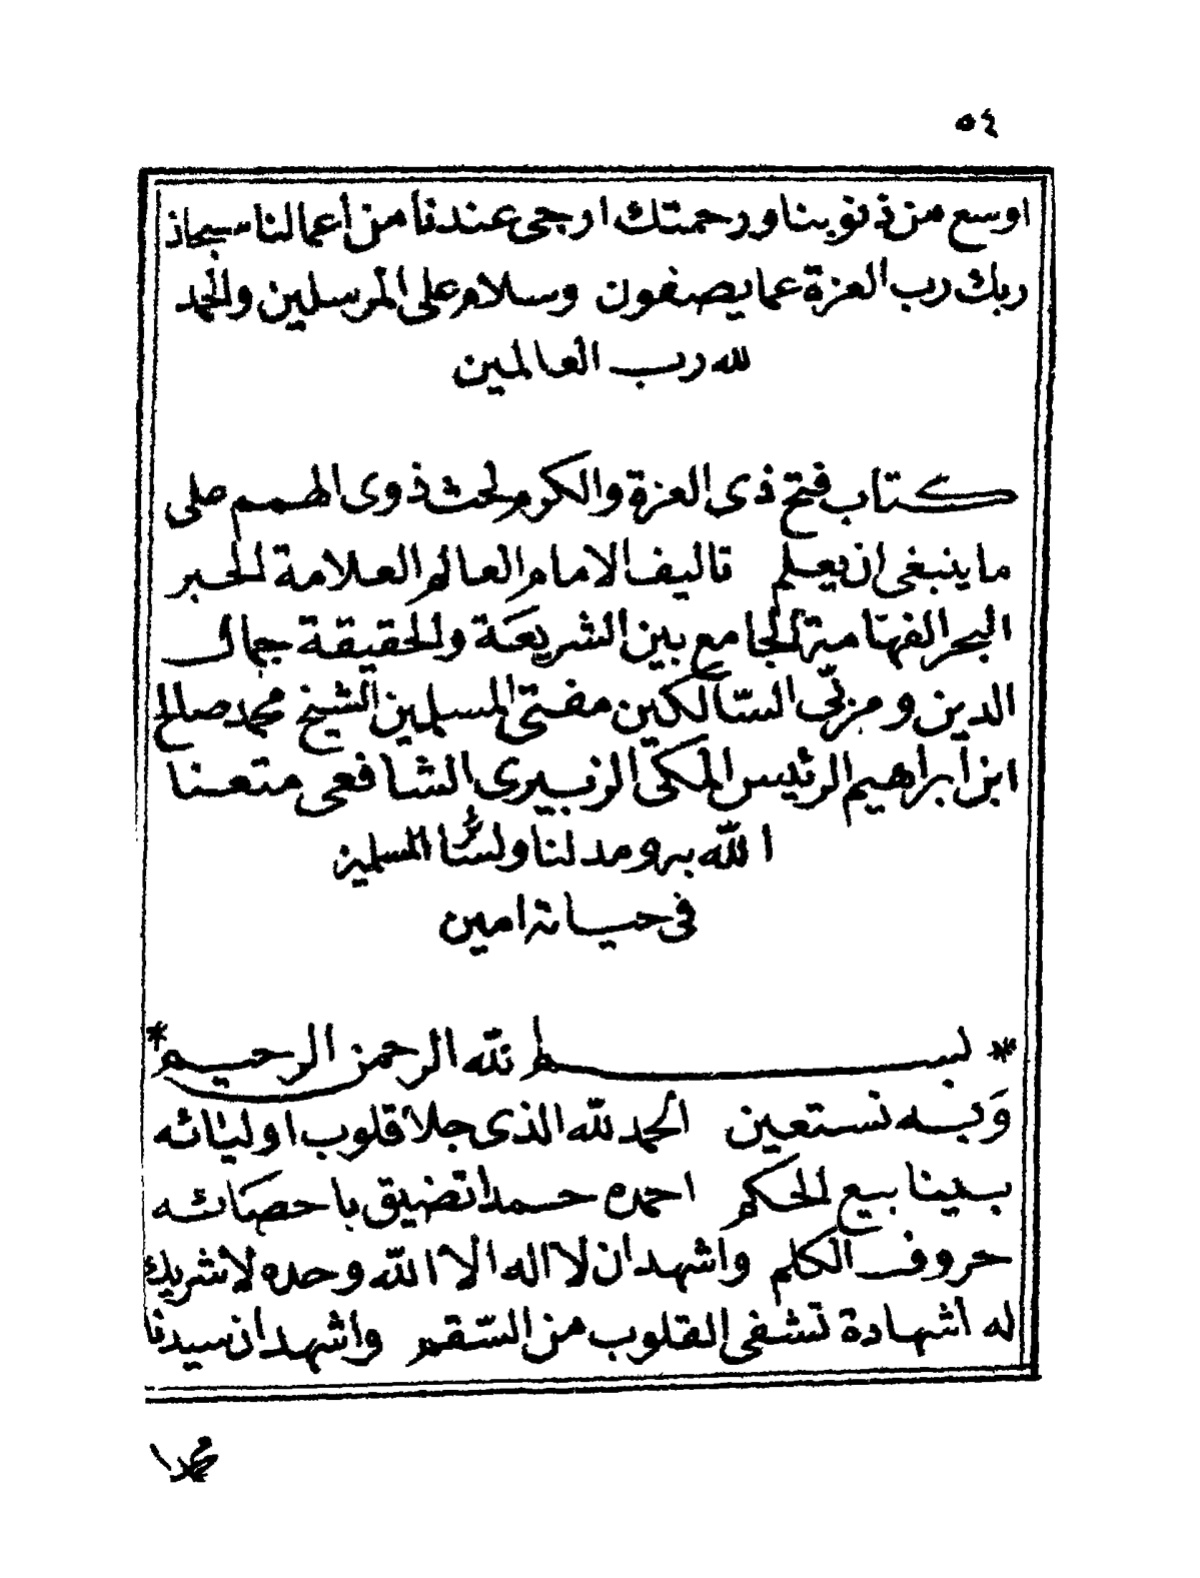 ٥٤
اوسع من ذنوبنا ورحمتك ارجى عندنا من أعمالنا سبحان
ربك رب العزة عما يصفون وسلام على المرسلين والحمد
لله رب العالمين
كتاب فتح ذى العزة والكرم لحث ذوى الهمم على
ما ينبغى ان يعلم تاليف الامام العالم العلامة الحبر
البحر الفهامة الجامع بين الشريعة والحقيقة جمال
الدين ومربّى السّالكين مفتى المسلمين الشيخ محمد صالح
ابن ابراهيم الرئيس المكى الزبيرى الشافعى متعنا
الله به ومد لنا ولسائر المسلمين
فى حياته امين
* بسم الله الرحمن الرحيم *
وَبه نستعين الحمد لله الذى جلا قلوب اوليائه
بينابيع الحكم احمده حمدا تضيق باحصائه
حروف الكلم واشهد ان لا اله الا الله وحده لا شريك
له اشهادة تشفى القلوب من السّقم واشهد ان سيدنا
محمدا